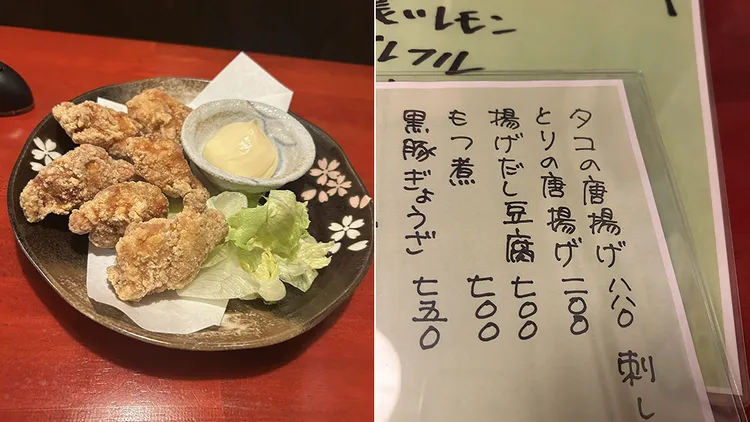 レモン
タコの唐揚げ 八八〇
とりの唐揚げ 一一〇〇
揚げだし豆腐 七〇〇
もつ煮 七〇〇
黒豚ぎょうざ 七五〇
刺し